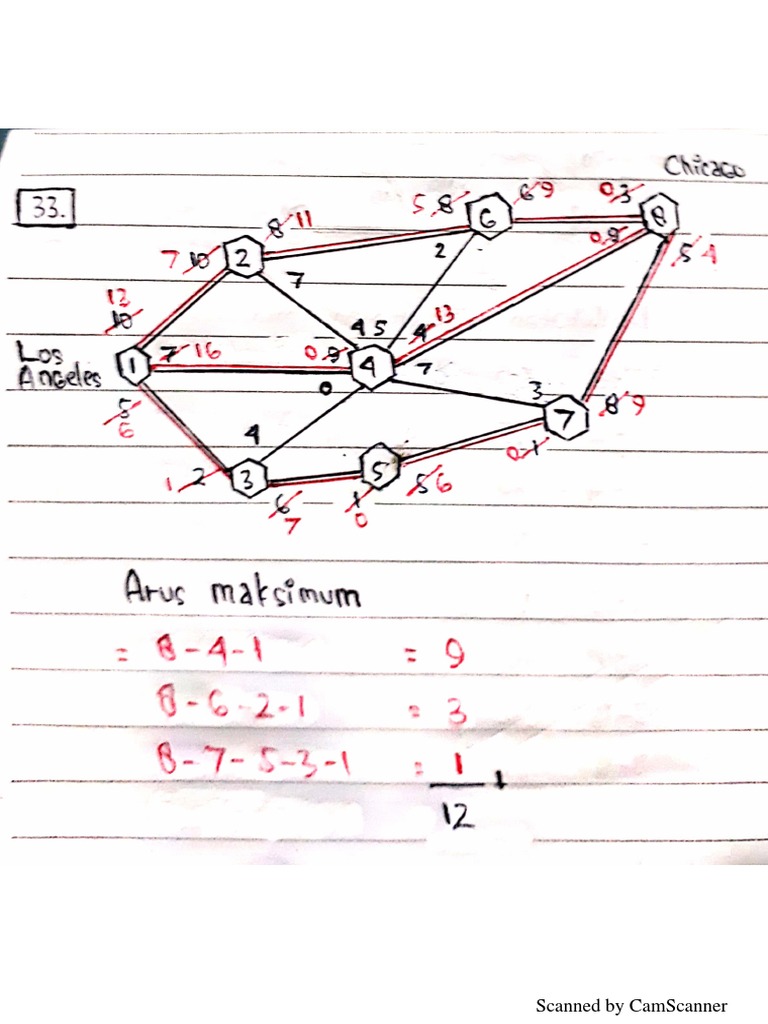 Chicago
33.
5 8 6 6 9 0 3 8
8 11
7 10 2 2 0 9 5 4
7
12
10 4 5 4 13
Los
Angeles 1 7 16 0 9 4 7
0 3
5 7 8 9
6 4 0 1
1 2 3 5 5 6
6 1
7 0
Arus maksimum
= 8-4-1 = 9
8-6-2-1 = 3
8-7-5-3-1 = 1 +
12
Scanned by CamScanner